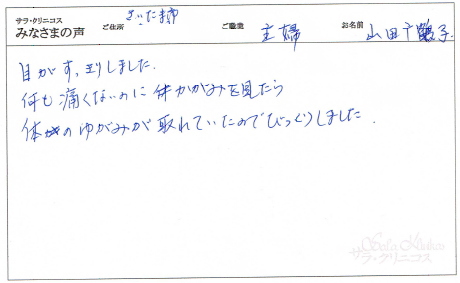 サラ・クリニコス
みなさまの声 ご住所 さいたま市 ご職業 主婦 お名前 山田千鶴子
目がすっきりしました.
何も痛くないのに 体かがみを見たら
体のゆがみが取れていたのでびっくりしました.
Sala Klinikos
サラ・クリニコス